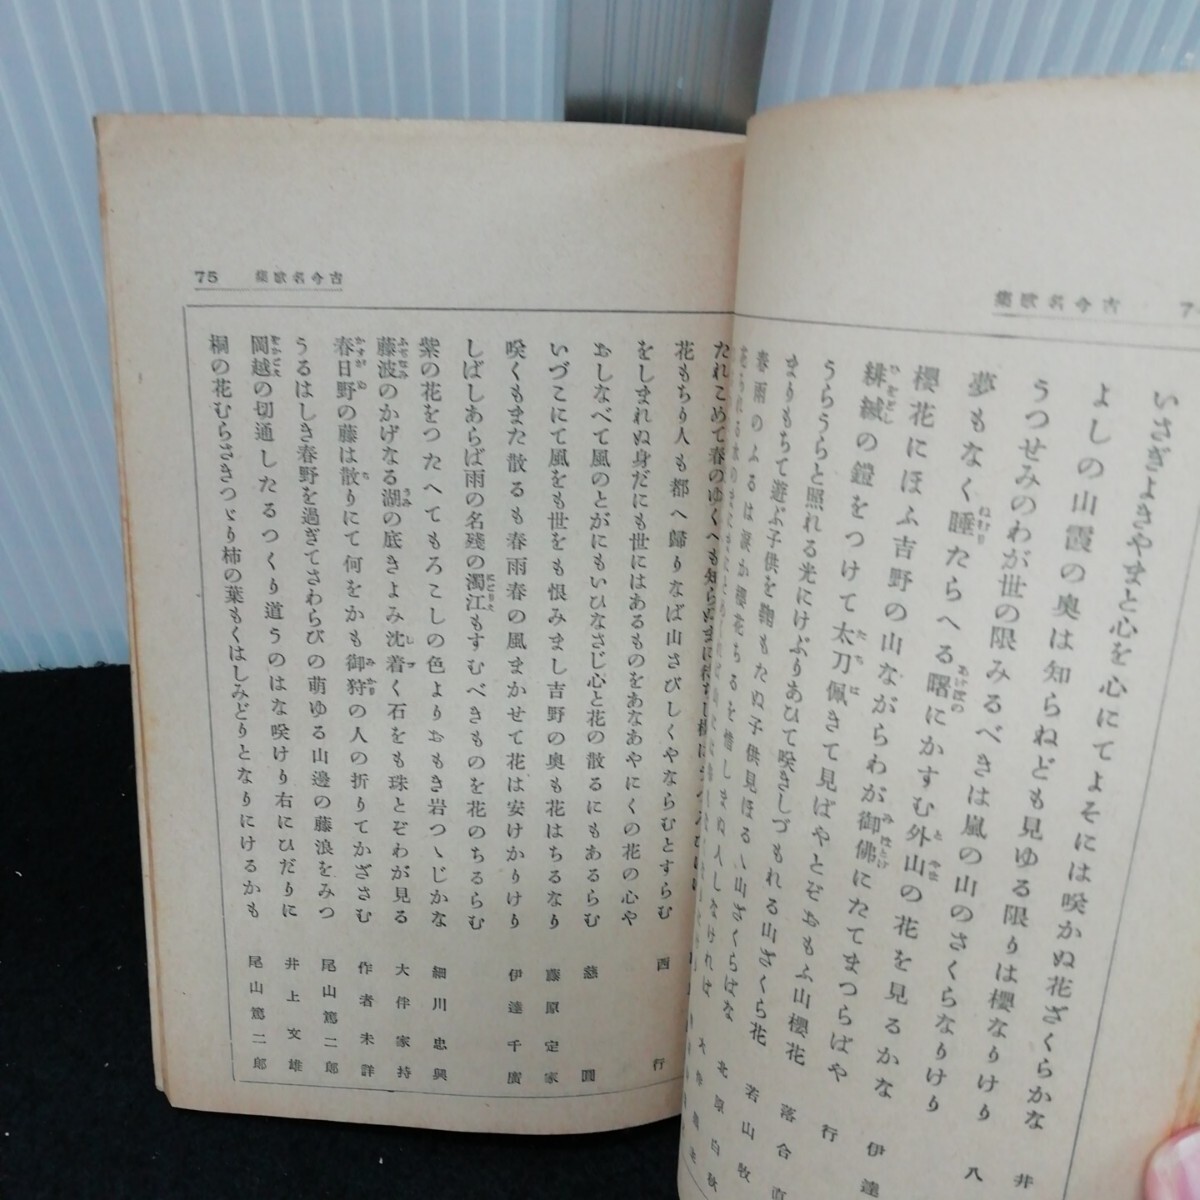 古今名歌集
いさぎよきやまと心を心にてよそには咲かぬ花ざくらかな
よしの山霞の奥は知らねども見ゆる限りは櫻なりけり 八
うつせみのわが世の限みるべきは嵐の山のさくらなりけり
夢もなく睡たらへる曙にかすむ外山の花を見るかな 伊達
櫻花にほふ吉野の山ながらわが御佛にたてまつらばや 行
緋縅の鎧をつけて太刀佩きて見ばやとぞおもふ山櫻花 落合直
うらうらと照れる光にけぶりあひて咲きしづもれる山ざくら花 若山牧
まりもちて遊ぶ子供を鞠もたぬ子供見ほるゝ山ざくらばな 北原白秋
春雨のふるは涙か櫻花ちるを惜しまぬ人しなければ
古今名歌集 75
たれこめて春のゆくへも知らぬまに待ちし櫻
花もちり人も都へ歸りなば山さびしくやならむとすらむ 西行
をしまれぬ身だにも世にはあるものをあなあやにくの花の心や
おしなべて風のとがにもいひなさじ心と花の散るにもあるらむ 慈圓
いづこにて風をも世をも恨みまし吉野の奥も花はちるなり 藤原定家
咲くもまた散るも春雨春の風まかせて花は安けかりけり 伊達千廣
しばしあらば雨の名殘の濁江もすむべきものを花のちるらむ
紫の花をつたへてもろこしの色よりおもき岩つゝじかな 細川忠興
藤波のかげなる湖の底きよみ沈着く石をも珠とぞわが見る 大伴家持
春日野の藤は散りにて何をかも御狩の人の折りてかざさむ 作者未詳
うるはしき春野を過ぎてさわらびの萌ゆる山邊の藤浪をみつ 尾山篤二郎
岡越の切通したるつくり道うのはな咲けり右にひだりに 井上文雄
桐の花むらさきつゞり柿の葉もくはしみどりとなりにけるかも 尾山篤二郎